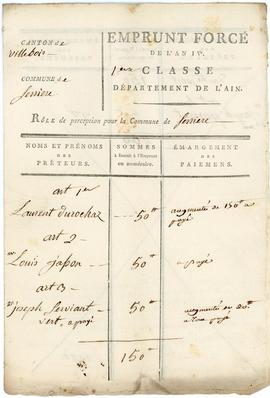 CANTON de
Villebois
EMPRUNT FORCÉ
DE L'AN IV.
1ere CLASSE
COMMUNE de
DÉPARTEMENT DE L'AIN.
RÔLE de perception pour la Commune de
NOMS ET PRÉNOMS
DES
PRÊTEURS.
SOMMES
à fournir à l'Emprunt
en numéraire.
ÉMARGEMENT
DES
PAIEMENS.
art 1er
Laurent durochat 50tt augmentés de 150tt a
payé
art 2
Louis 50tt a payé
art 3
joseph Serviant 50tt augmenté
vert, a payé payé
150tt